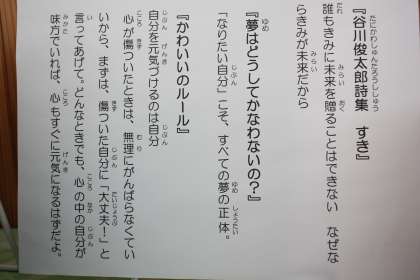 『谷川俊太郎詩集　すき』
誰もきみに未来を贈ることはできない　なぜな
らきみが未来だから
『夢はどうしてかなわないの？』
「なりたい自分」こそ、すべての夢の正体。
『かわいいのルール』
自分を元気づけるのは自分
心が傷ついたときは、無理にがんばらなくてい
いから、まずは、傷ついた自分に「大丈夫！」と
言ってあげて。どんなときでも、心の中の自分が
味方でいれば、心もすぐに元気になるはずだよ。